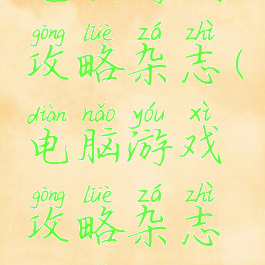 gōng lüè zá zhì
攻略杂志(
diàn nǎo yóu xì
电脑游戏
gōng lüè zá zhì
攻略杂志